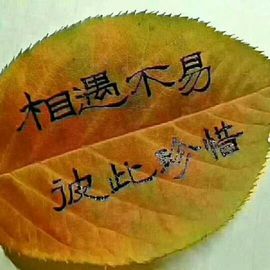 相遇不易
彼此珍惜